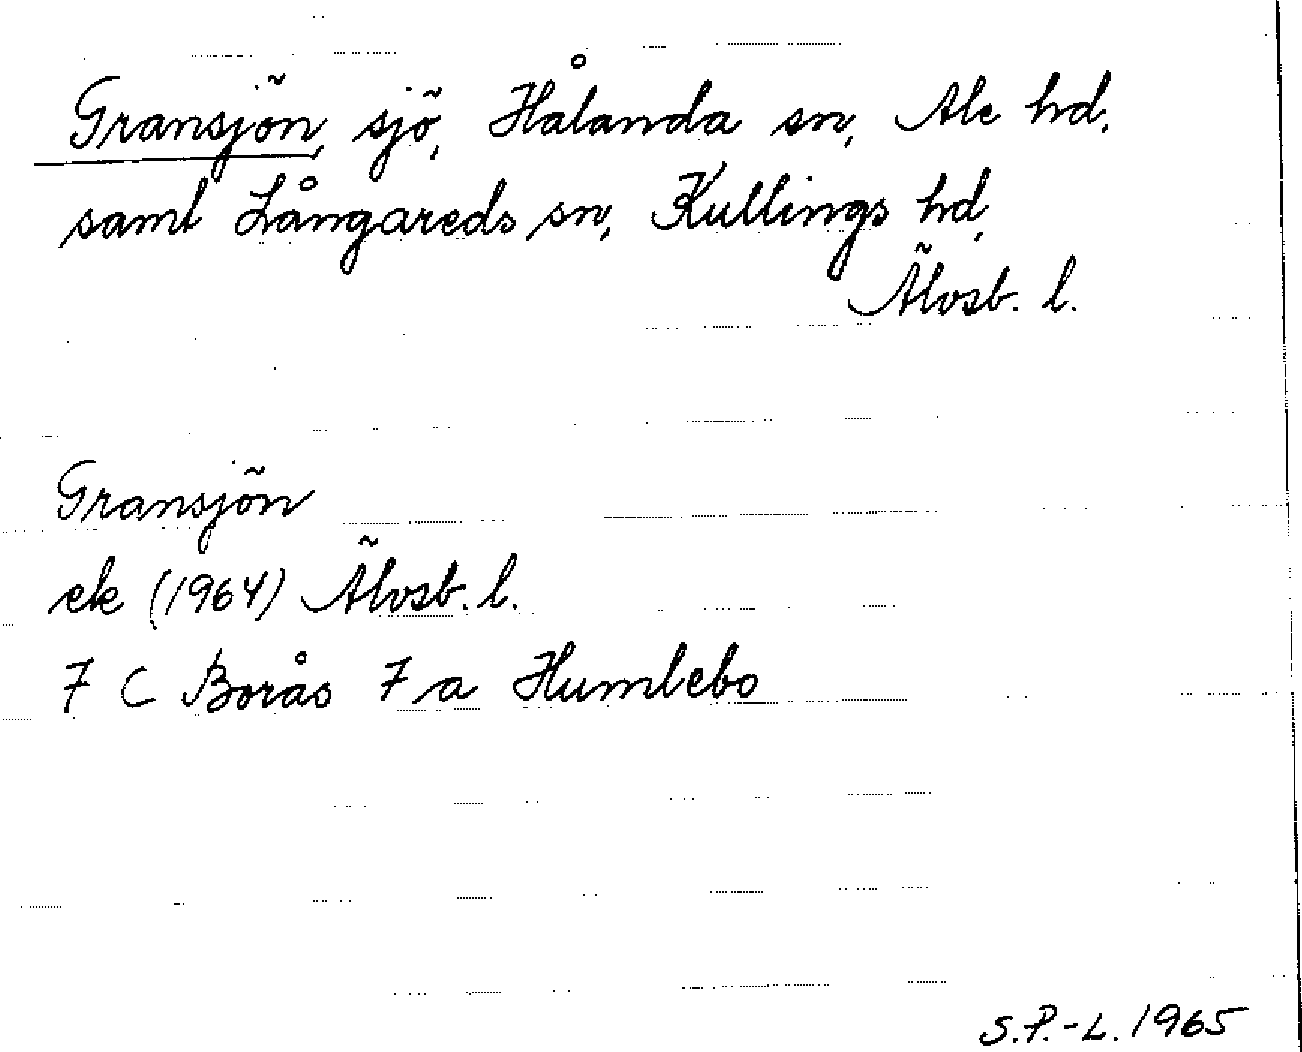 Gransjön, sjö, Hålanda sn, Ale hd.
samt Långareds sn, Kullings hd,
Älvsb. l.
Gransjön
ek (1964) Älvsb. l.
7 C Borås 7 a Humlebo
S.P.-L. 1965